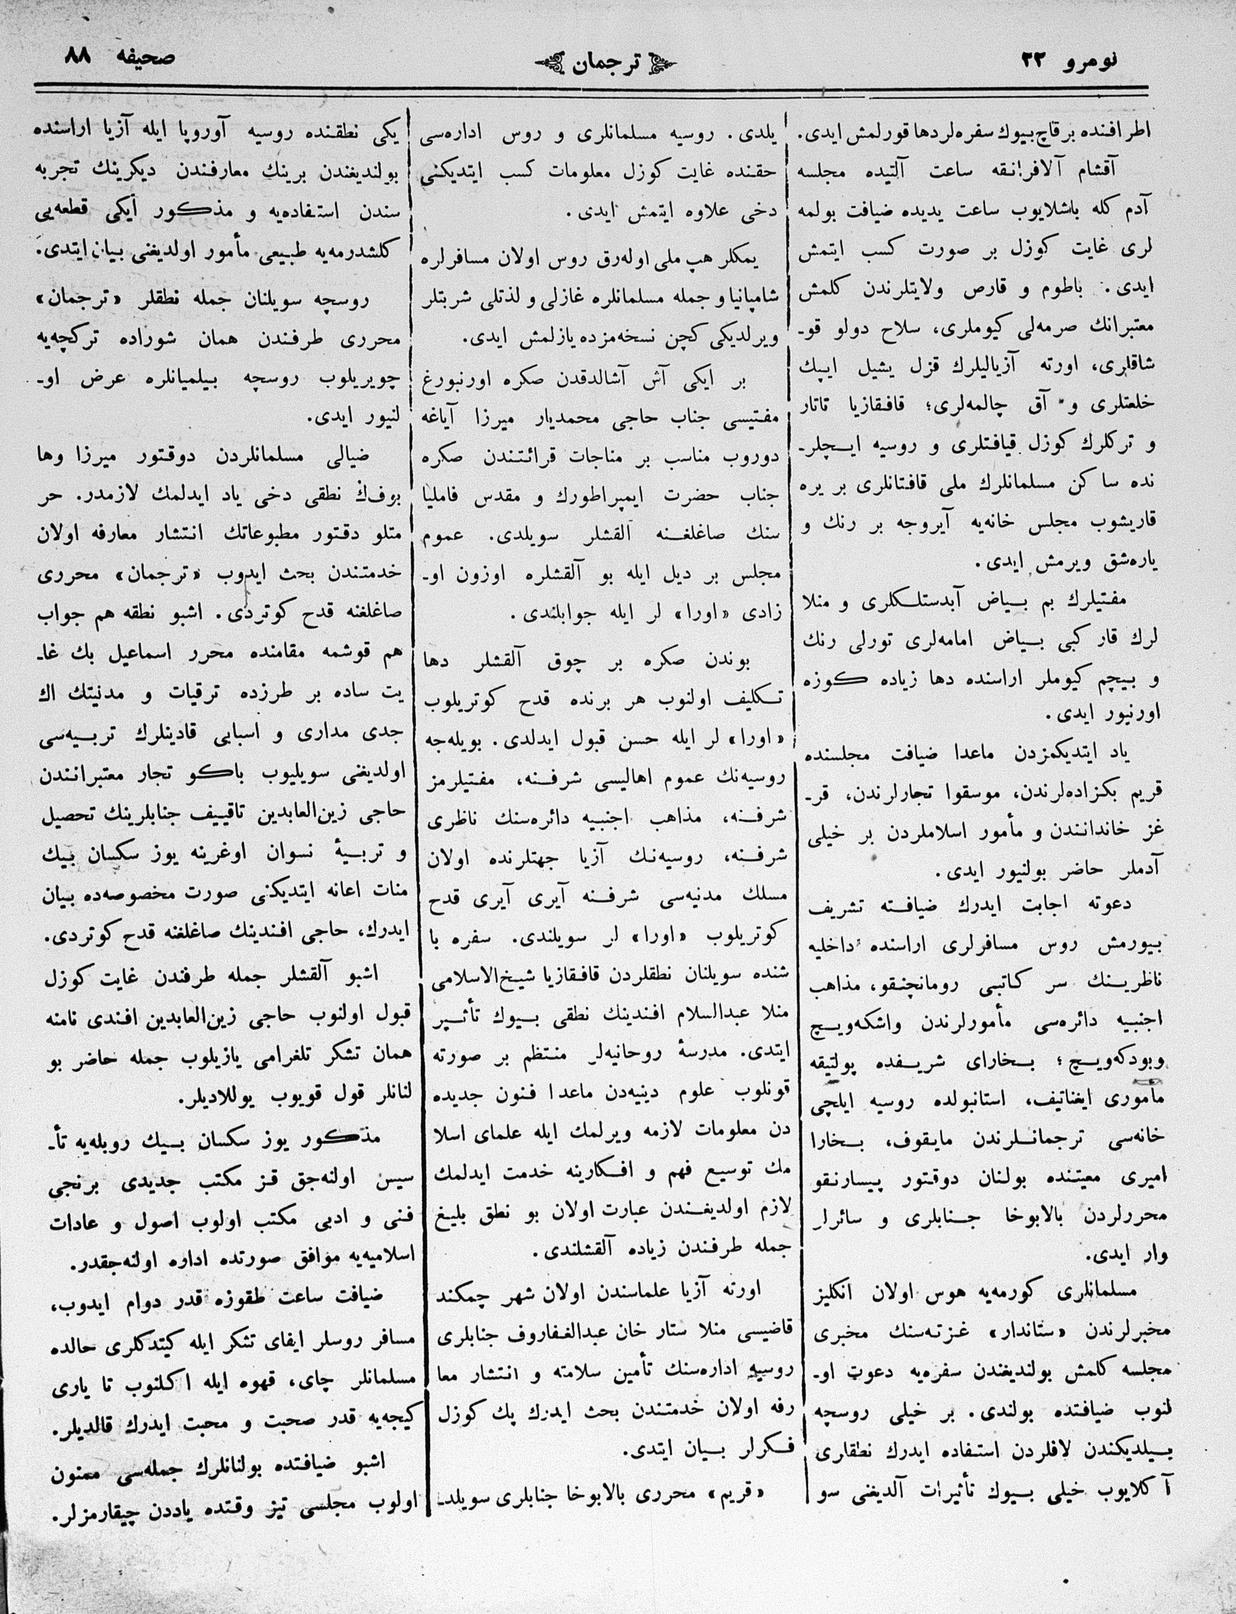 نومرو ٢٢
ترجمان
صحيفه ٨٨
اطرافنده بر قاچ بیوك سفره‌لر دها قورلمش ایدی.
آقشام آلافرانقه ساعت آلتیده مجلسه
آدم كله باشلایوب ساعت یدیده ضیافت بولمه
لری غایت كوزل بر صورت كسب ایتمش
ایدی. باطوم و قارص ولایتلرندن كلمش
معتبرانك صرمه‌لی كیوملری، سلاح دولو قو-
شاقلری، اورته آزیالیلرك قزل یشیل ایپك
خلعتلری و آق چالمه‌لری؛ قافقازیا تاتار
و تركلرك كوزل قیافتلری و روسیه ایچلر-
نده ساكن مسلمانلرك ملی قافتانلری بر یره
قاریشوب مجلس خانه‌یه آیروجه بر رنك و
یاره‌شق ویرمش ایدی.
مفتیلرك بم بیاض آبدستلكلری و منلا
لرك قار كبی بیاض امامه‌لری تورلی رنك
و بیچم كیوملر اراسنده دها زیاده كوزه
اورنیور ایدی.
یاد ایتدیكمزدن ماعدا ضیافت مجلسنده
قریم بكزاده‌لرندن، موسقوا تجارلرندن، قر-
غز خاندانندن و مأمور اسلاملردن بر خیلی
آدملر حاضر بولنیور ایدی.
دعوته اجابت ایدرك ضیافته تشریف
بیورمش روس مسافرلری اراسنده داخلیه
ناظرینك سر كاتبی رومانچنقو، مذاهب
اجنبیه دائره‌سی مأمورلرندن واشكه‌ویچ
وبودكه‌ویچ؛ بخارای شریفده پولتیقه
مأموری ایغناتیف، استانبولده روسیه ایلچی
خانه‌سی ترجمانلرندن مایقوف، بخارا
امیری معیتنده بولنان دوقتور پیسارنقو
محررلردن بالابوخا جنابلری و سائرلر
وار ایدی.
مسلمانلری كورمه‌یه هوس اولان انكلیز
مخبرلرندن «ستاندار» غزته‌سنك مخبری
مجلسه كلمش بولندیغندن سفره‌یه دعوت او-
لنوب ضیافتده بولندی. بر خیلی روسچه
بیلدیكندن لافلردن استفاده ایدرك نطقلری
آكلایوب خیلی بیوك تأثیرات آلدیغی سو
یلدی. روسیه مسلمانلری و روس اداره‌سی
حقنده غایت كوزل معلومات كسب ایتدیكنی
دخی علاوه ایتمش ایدی.
یمكلر هپ ملی اوله‌رق روس اولان مسافرلره
شامپانیا و جمله مسلمانلره غازلی و لذتلی شربتلر
ویرلدیكی كچن نسخه‌مزده یازلمش ایدی.
بر ایكی آش آشالدقدن صكره اورنبورغ
مفتیسی جناب حاجی محمدیار میرزا آیاغه
دوروب مناسب بر مناجات قرائتندن صكره
جناب حضرت ایمپراطورك و مقدس فاملیا
سنك صاغلغنه القشلر سویلدی. عموم
مجلس بر دیل ایله بو آلقشلره اوزون او-
زادی «اورا» لر ایله جوابلندی.
بوندن صكره بر چوق آلقشلر دها
تكلیف اولنوب هر برنده قدح كوتریلوب
«اورا» لر ایله حسن قبول ایدلدی. بویله‌جه
روسیه‌نك عموم اهالیسی شرفنه، مفتیلرمز
شرفنه، مذاهب اجنبیه دائره‌سنك ناظری
شرفنه، روسیه‌نك آزیا جهتلرنده اولان
مسلك مدنیه‌سی شرفنه آیری آیری قدح
كوتریلوب «اورا» لر سویلندی. سفره با
شنده سویلنان نطقلردن قافقازیا شیخ‌الاسلامی
منلا عبدالسلام افندینك نطقی بیوك تأثیر
ایتدی. مدرسهٔ روحانیه‌لر منتظم بر صورته
قونلوب علوم دینیه‌دن ماعدا فنون جدیده
دن معلومات لازمه ویرلمك ایله علمای اسلا
مك توسیع فهم و افكارینه خدمت ایدلمك
لازم اولدیغندن عبارت اولان بو نطق بلیغ
جمله طرفندن زیاده آلقشلندی.
اورته آزیا علماسندن اولان شهر چمكند
قاضیسی منلا ستار خان عبدالغفاروف جنابلری
روسیه اداره‌سنك تأمین سلامته و انتشار معا
رفه اولان خدمتندن بحث ایدرك پك كوزل
فكرلر بیان ایتدی.
«قریم» محرری بالابوخا جنابلری سویلد-
یكی نطقنده روسیه آوروپا ایله آزیا اراسنده
بولندیغندن برینك معارفندن دیكرینك تجربه
سندن استفاده‌یه و مذكور ایكی قطعه‌یی
كلشدرمه‌یه طبیعی مأمور اولدیغنی بیان ایتدی.
روسچه سویلنان جمله نطقلر «ترجمان»
محرری طرفندن همان شوراده تركچه‌یه
چویریلوب روسچه بیلمیانلره عرض او-
لنیور ایدی.
ضیالی مسلمانلردن دوقتور میرزا وها
بوفك نطقی دخی یاد ایدلمك لازمدر. حر
متلو دقتور مطبوعاتك انتشار معارفه اولان
خدمتندن بحث ایدوب «ترجمان» محرری
صاغلغنه قدح كوتردی. اشبو نطقه هم جواب
هم قوشمه مقامنده محرر اسماعیل بك غا-
یت ساده بر طرزده ترقیات و مدنیتك اك
جدی مداری و اسبابی قادینلرك تربیه‌سی
اولدیغنی سویلیوب باكو تجار معتبرانندن
حاجی زین‌العابدین تاقییف جنابلرینك تحصیل
و تربیهٔ نسوان اوغرینه یوز سكسان بیك
منات اعانه ایتدیكنی صورت مخصوصه‌ده بیان
ایدرك، حاجی افندینك صاغلغنه قدح كوتردی.
اشبو آلقشلر جمله طرفندن غایت كوزل
قبول اولنوب حاجی زین‌العابدین افندی نامنه
همان تشكر تلغرامی یازیلوب جمله حاضر بو
لنانلر قول قویوب یوللادیلر.
مذكور یوز سكسان بیك روبله‌یه تأ-
سیس اوله‌جق قز مكتب جدیدی برنجی
فنی و ادبی مكتب اولوب اصول و عادات
اسلامیه‌یه موافق صورتده اداره اولنه‌جقدر.
ضیافت ساعت طقوزه قدر دوام ایدوب،
مسافر روسلر ایفای تشكر ایله كیتدكلری حالده
مسلمانلر چای، قهوه ایله اكلنوب تا یاری
كیجه‌یه قدر صحبت و محبت ایدرك قالدیلر.
اشبو ضیافتده بولنانلرك جمله‌سی ممنون
اولوب مجلسی تیز وقتده یاددن چیقارمزلر.